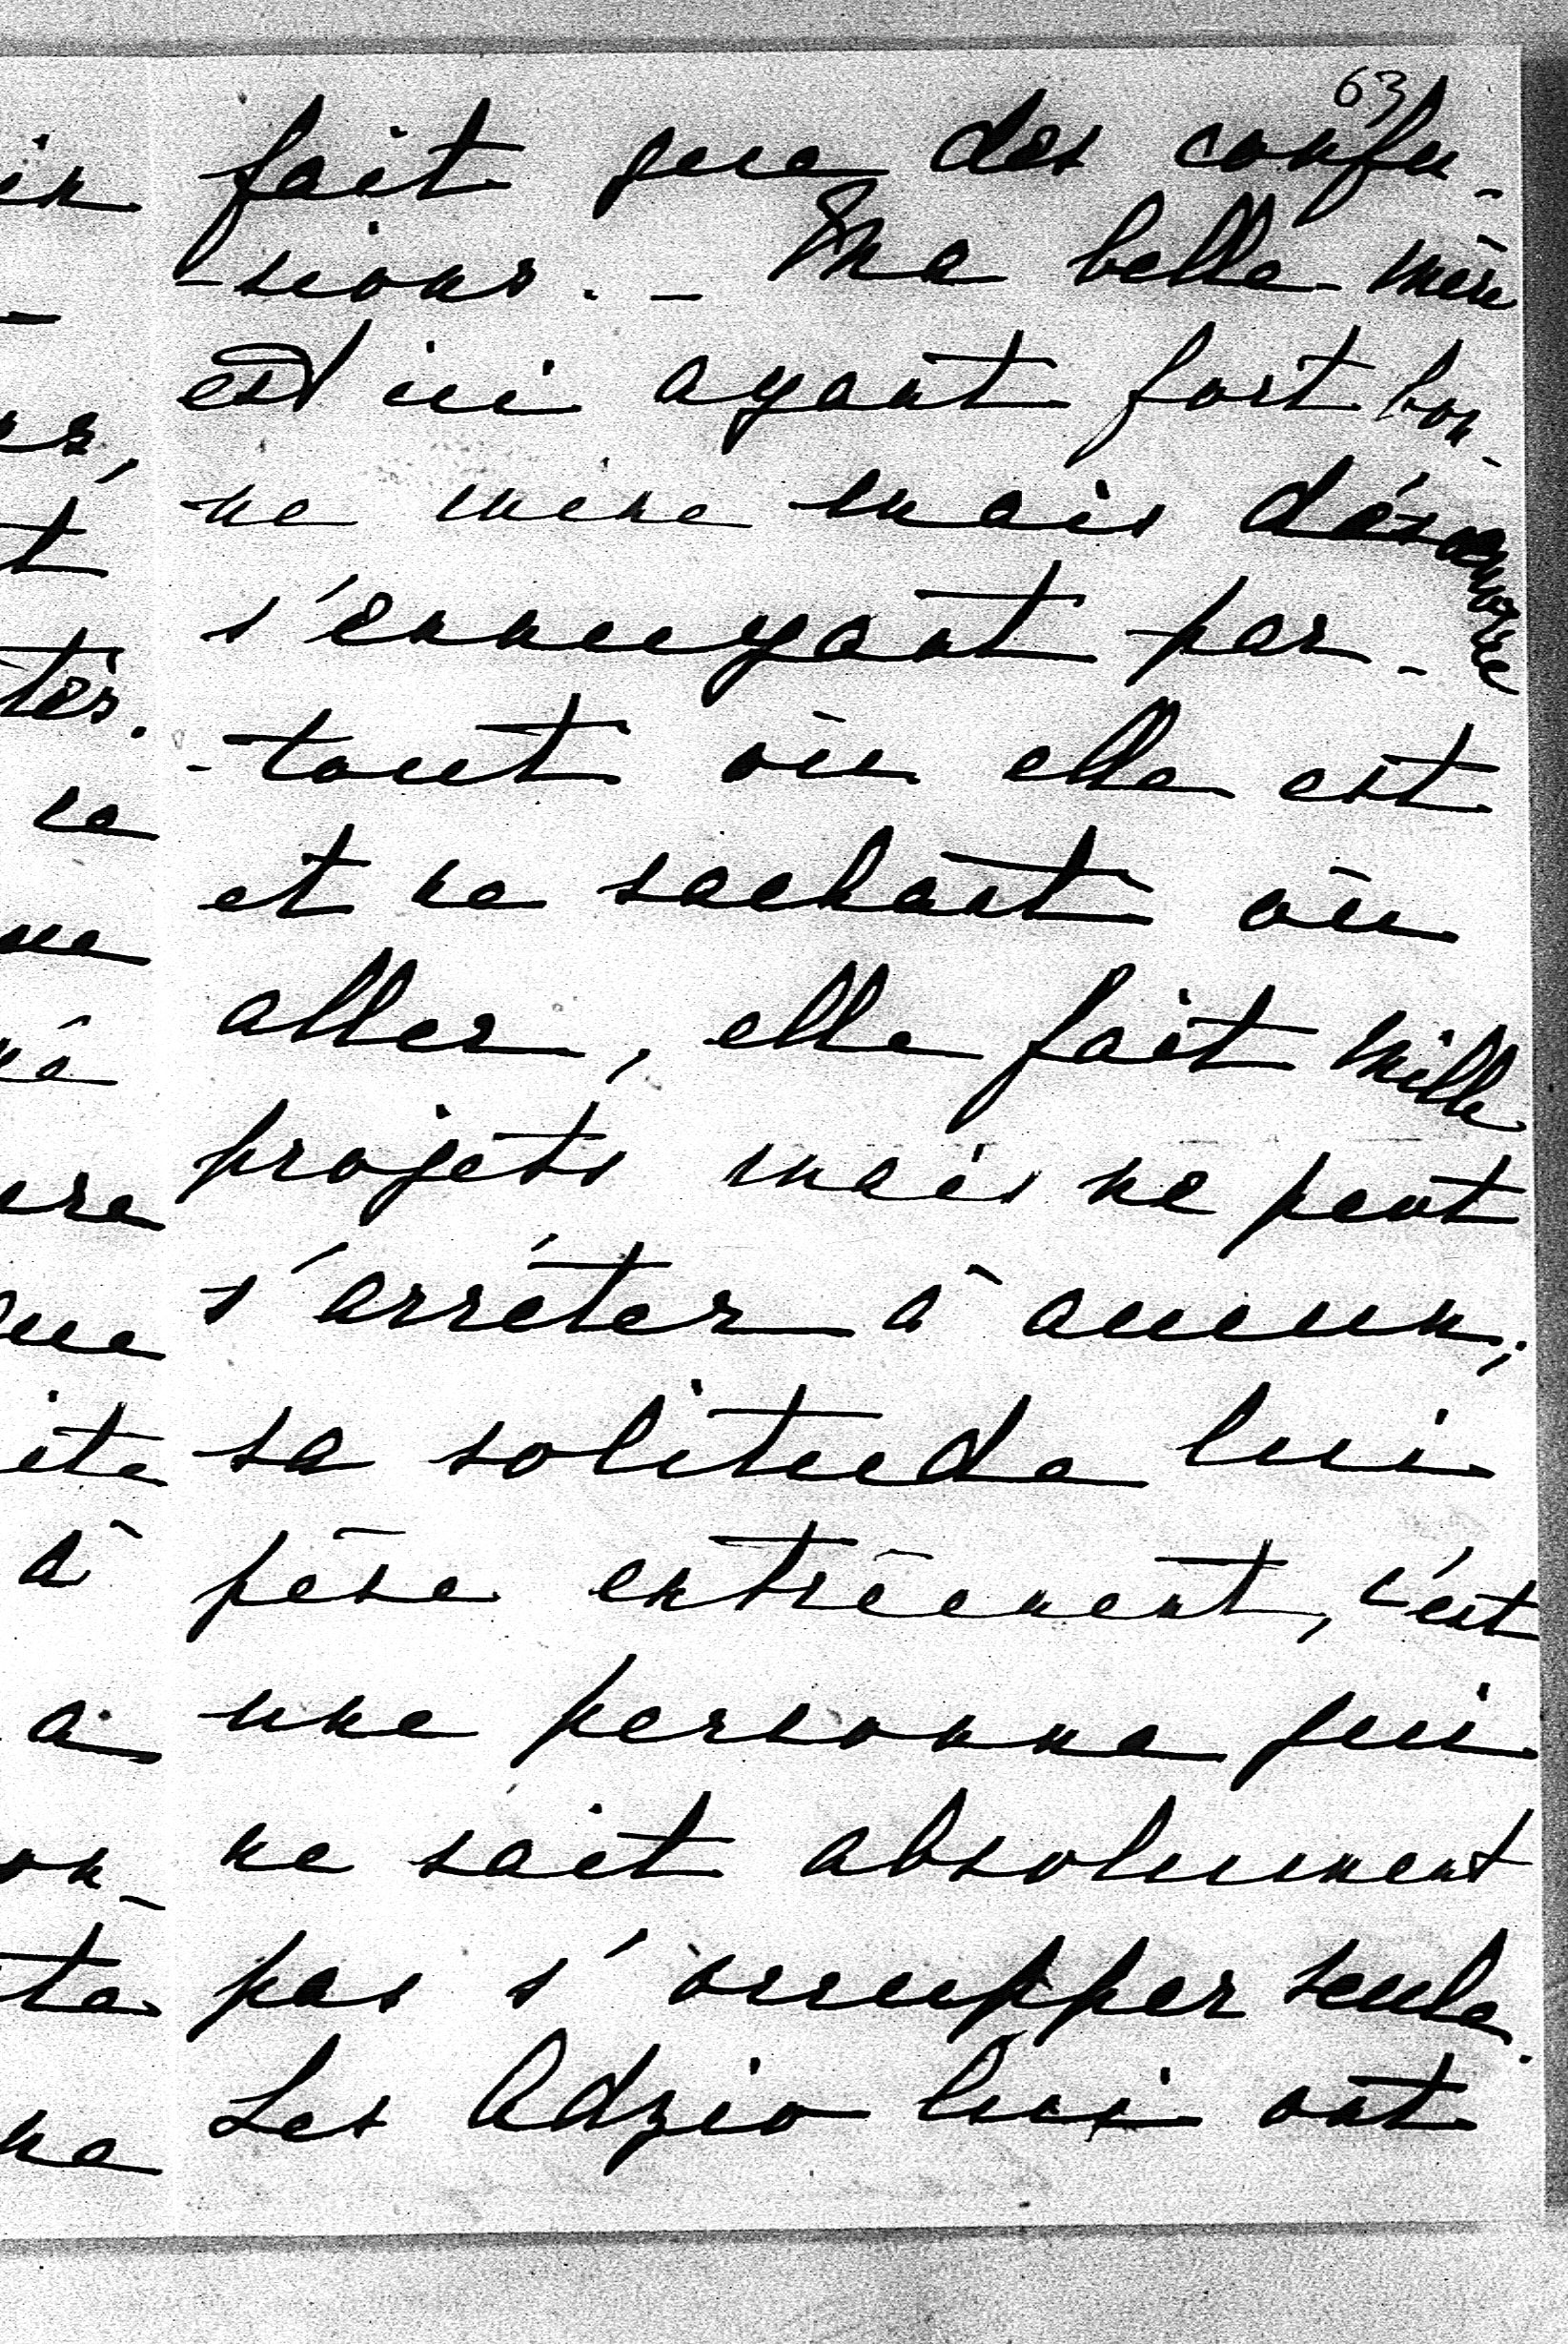 63
fait que des confu-
-sions. - Ma belle-mère
est ici ayant fort bon-
ne mine mais désœuvrée
s'ennuyant par-
-tout où elle est
et ne sachant où
aller, elle fait mille
projets mais ne peut
s'arréter à aucun;
sa solitude lui
pèse extrèmement, c'est
une personne qui
ne sait absolument
pas s'occupper seule.
Les Adzio lui ont